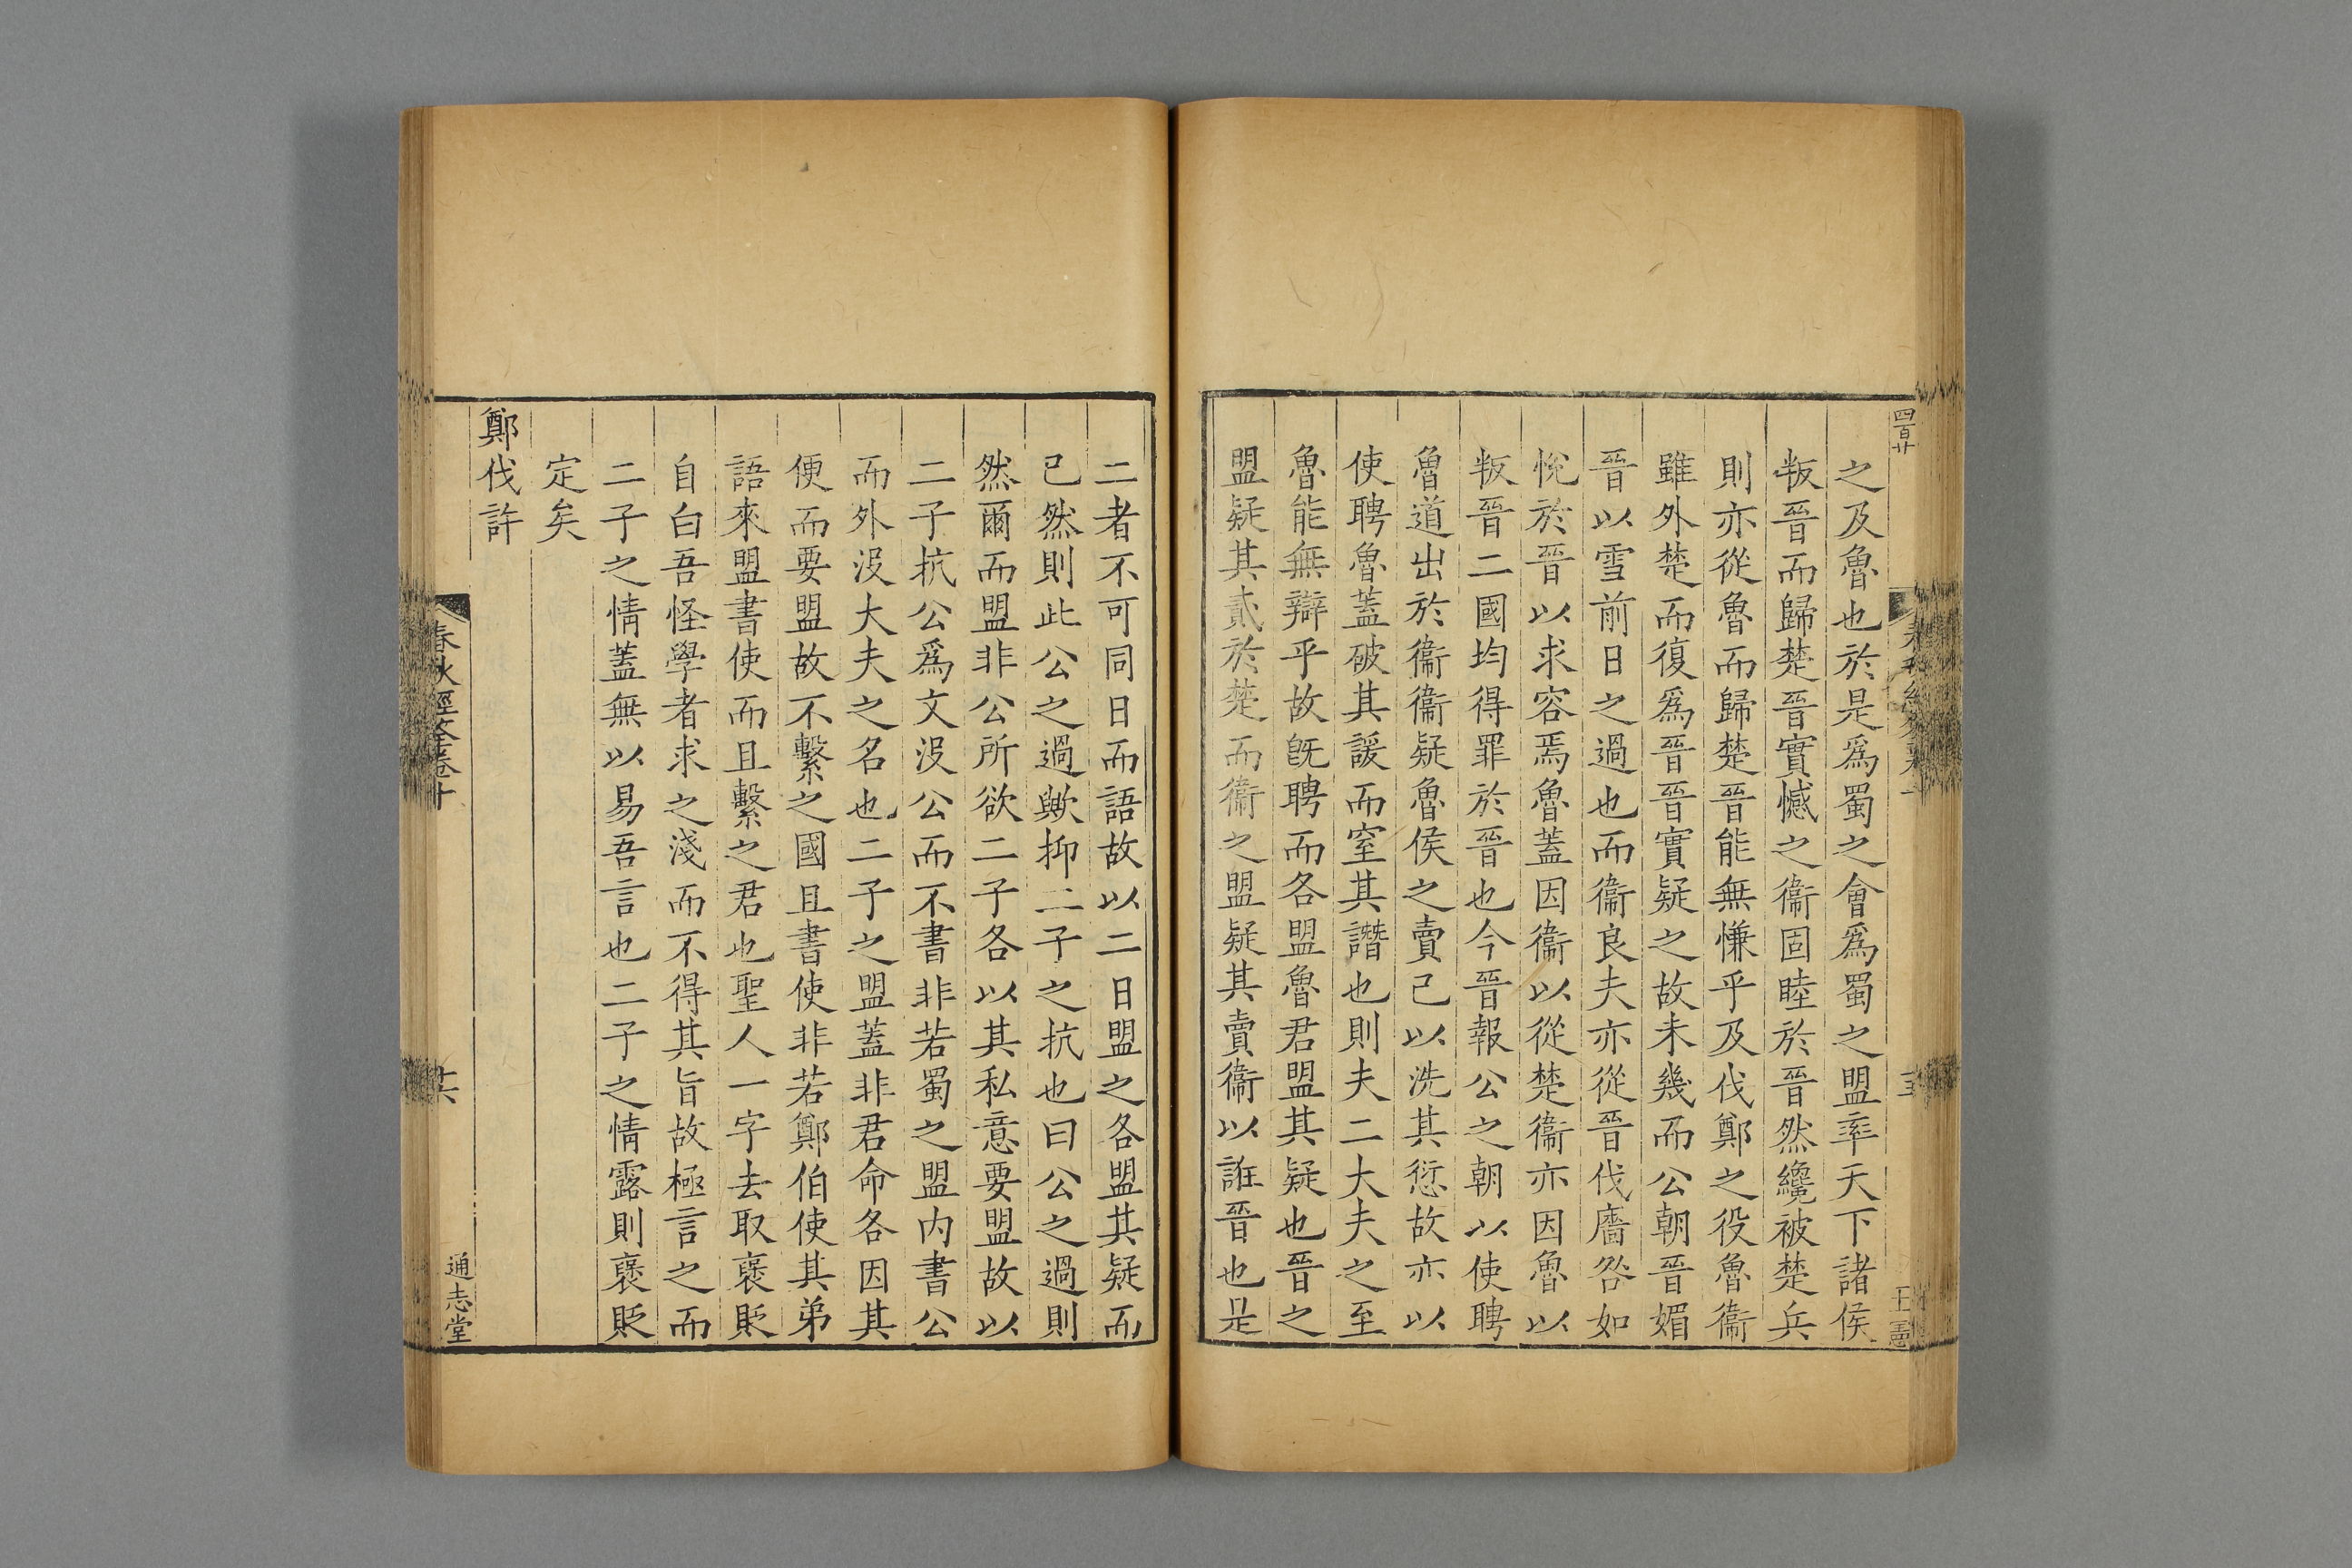 四百廿
之及魯也於是爲蜀之會爲蜀之盟率天下諸侯
叛晉而歸楚晉實憾之衞固睦於晉然纔被楚兵
則亦從魯而歸楚晉能無慊乎及伐鄭之役魯衞
雖外楚而復爲晉晉實疑之故未幾而公朝晉媚
晉以雪前日之過也而衞良夫亦從晉伐廧咎如
悅於晉以求容焉魯蓋因衞以從楚衞亦因魯以
叛晉二國均得罪於晉也今晉報公之朝以使聘
魯道出於衞衞疑魯侯之賣己以洗其愆故亦以
使聘魯蓋破其諼而窒其譖也則夫二大夫之至
魯能無辯乎故旣聘而各盟魯君盟其疑也晉之
盟疑其貳於楚而衞之盟疑其賣衞以誑晉也是
二者不可同日而語故以二日盟之各盟其疑而
已然則此公之過歟抑二子之抗也曰公之過則
然爾而盟非公所欲二子各以其私意要盟故以
二子抗公爲文没公而不書非若蜀之盟内書公
而外没大夫之名也二子之盟蓋非君命各因其
便而要盟故不繫之國且書使非若鄭伯使其弟
語來盟書使而且繫之君也聖人一字去取褒貶
自白吾怪學者求之淺而不得其旨故極言之而
二子之情蓋無以易吾言也二子之情露則褒貶
定矣
鄭伐許
春秋經筌卷十
通志堂